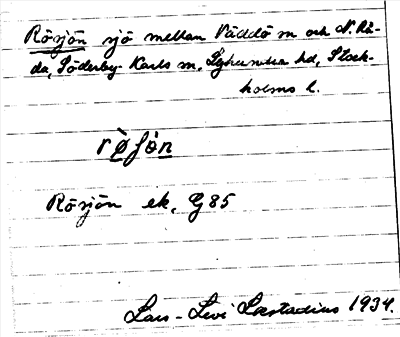 Rösjön sjö mellan Väddö m och N. Rå-
da, Söderby-Karls sn, Lyhundra hd, Stock-
holms l.
rö̀ʃön
Rösjön ek. G 85
Lars-Levi Læstadius 1934.